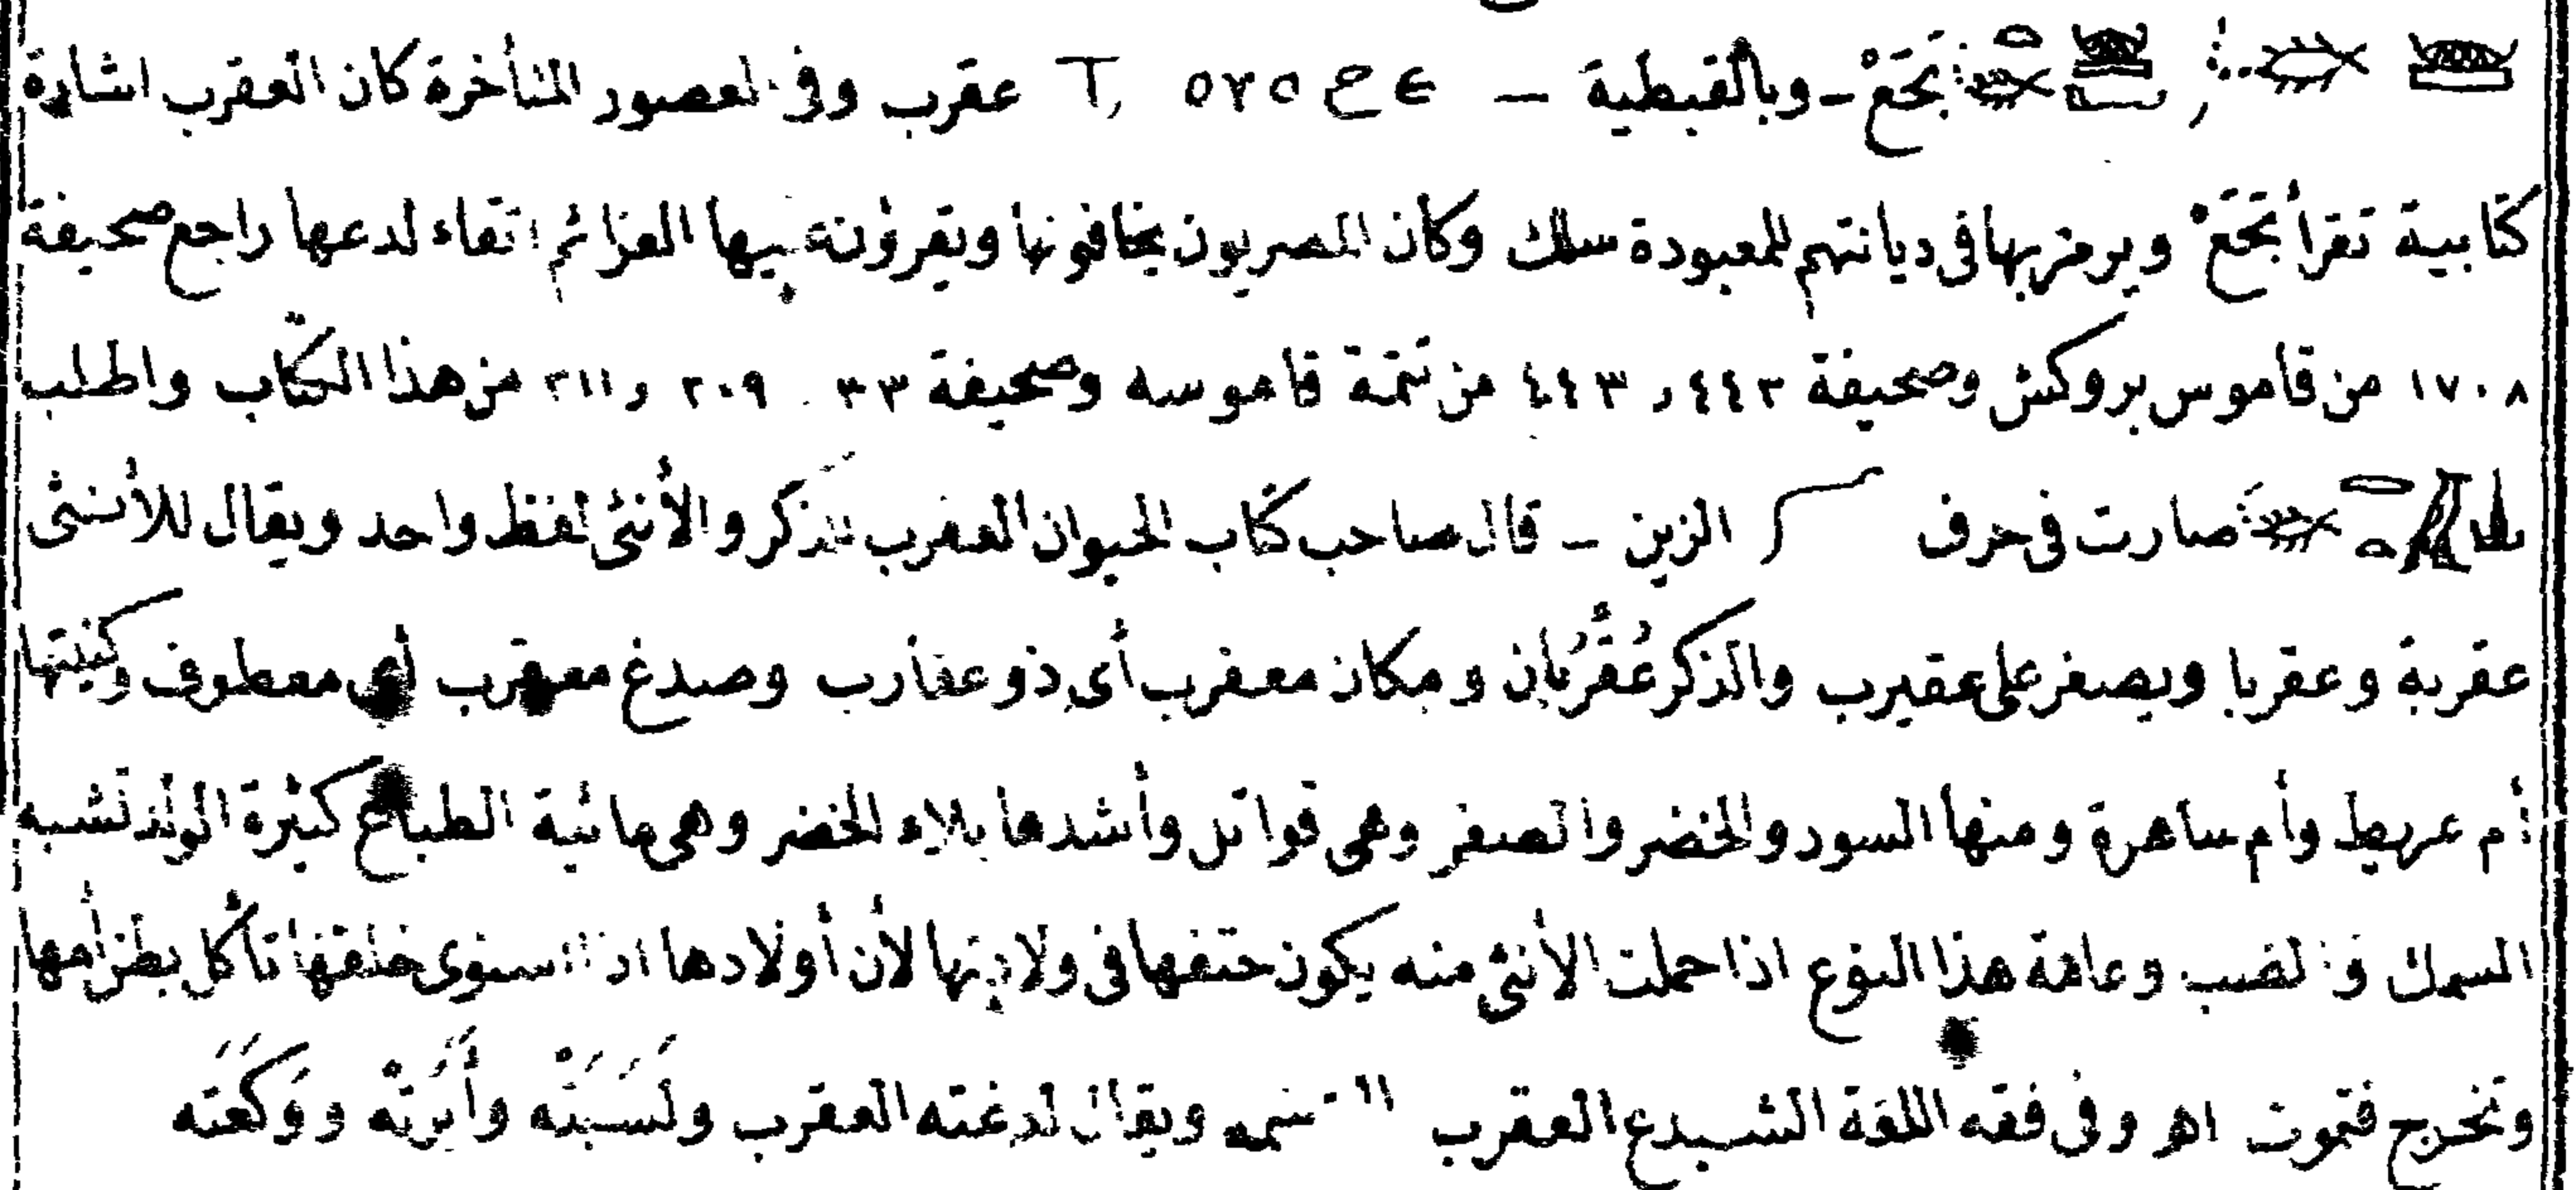 بَحَعْ - وبالقبطية - عقرب وفى العصور المتأخرة كان العقرب اشارة
كتابية تقرأ بَحَعْ ويرمز بها فى ديانتهم للمعبودة سلك وكان المصريون يخافونها ويقرؤن عليها العزائم اتقاء لدعها راجع صحيفة
١٧٠٨ من قاموس بروكش وصحيفة ٤٤٢ و ٤٤٣ من تتمة قاموسه وصحيفة ٣٣ ٢٠٩ و ٢١١ من هذا الكتاب واطلب
صارت فى حرف الزين - قال صاحب كتاب الحيوان العقرب للذكر والأنثى لفظ واحد ويقال للأنثى
عقربة وعقربا ويصغر على عقيرب والذكر عُقْرُبان ومكان معقرب أى ذو عقارب وصدغ معقرب أى معطوف وكنيتها
أم عريط وأم ساهرة ومنها السود والخضر والصفر وهى قواتل وأشدها بلاء الخضر وهى مائية الطباع كثيرة الولد تشبه
السمك والضب وعامة هذا النوع اذا حملت الأنثى منه يكون حتفها فى ولادتها لأن أولادها اذا استوى خلقها تأكل بطن أمها
وتخرج فتموت اه وفى فقه اللغة الشبدع العقرب ويقال لدغته العقرب ولَسَبَتْه وأَبَرَتْه ووَكَعَته